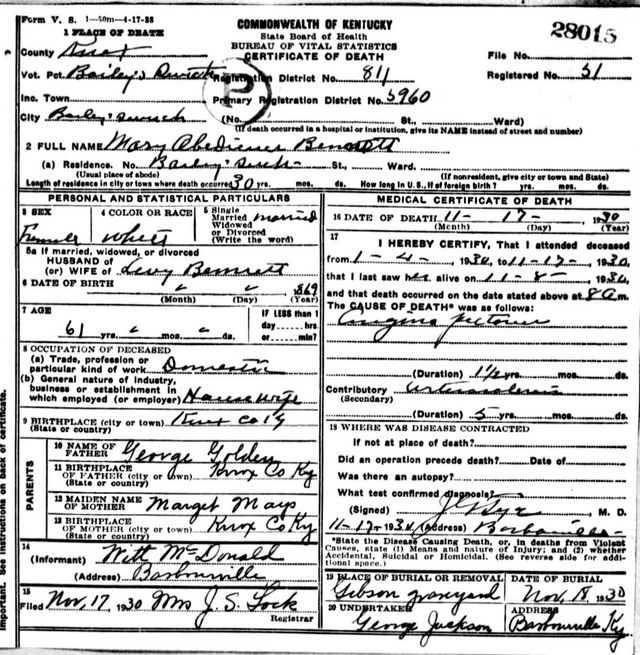 Form V. S. 1—50m—4-17-28
COMMONWEALTH OF KENTUCKY
State Board of Health
BUREAU OF VITAL STATISTICS
CERTIFICATE OF DEATH
28015
1 PLACE OF DEATH
County
File No.
Vot. Pct. Bailey's Registration District No. 811
Registered No. 51
Inc. Town Primary Registration District No. 5960
City (No. St., Ward)
(If death occurred in a hospital or institution, give its NAME instead of street and number)
2 FULL NAME Mary Bennett
(a) Residence. No. St., Ward.
(Usual place of abode) (If nonresident, give city or town and State)
Length of residence in city or town where death occurred 30 yrs. mos. ds. How long in U. S., if of foreign birth? yrs. mos. ds.
PERSONAL AND STATISTICAL PARTICULARS
3 SEX Female
4 COLOR OR RACE White
5 Single Married Widowed or Divorced (Write the word) married
5a If married, widowed, or divorced
HUSBAND of
(or) WIFE of Levy Bennett
6 DATE OF BIRTH 869
(Month) (Day) (Year)
7 AGE
61 yrs. mos. ds.
IF LESS than 1 day hrs. or min.?
8 OCCUPATION OF DECEASED
(a) Trade, profession or particular kind of work Domestic
(b) General nature of industry, business or establishment in which employed (or employer) House wife
9 BIRTHPLACE (city or town) Knox Co Ky
(State or country)
PARENTS
10 NAME OF FATHER George Golden
11 BIRTHPLACE OF FATHER (city or town) Knox Co Ky
(State or country)
12 MAIDEN NAME OF MOTHER Marget Mays
13 BIRTHPLACE OF MOTHER (city or town) Knox Co Ky
(State or country)
14
(Informant) Witt McDonald
(Address) Barbourville
15
Filed Nov. 17, 1930 Mrs J. S. Lock
Registrar
MEDICAL CERTIFICATE OF DEATH
16 DATE OF DEATH 11- 17- 1930
(Month) (Day) (Year)
17
I HEREBY CERTIFY, That I attended deceased
from 1-4- 1930, to 11-17-, 1930,
that I last saw her alive on 11-8-, 1930,
and that death occurred on the date stated above at 8 a m.
The CAUSE OF DEATH* was as follows:
Angina pectoris
(Duration) 1 1/2 yrs. mos. ds.
Contributory
(Secondary)
(Duration) 5 yrs. mos. ds.
18 WHERE WAS DISEASE CONTRACTED
If not at place of death?
Did an operation precede death? Date of
Was there an autopsy?
What test confirmed diagnosis?
(Signed) M. D.
11-17-1930 (Address) Barbourville
*State the Disease Causing Death, or, in deaths from Violent
Causes, state (1) Means and nature of Injury; and (2) whether
Accidental, Suicidal or Homicidal. (See reverse side for addi-
tional space.)
19 PLACE OF BURIAL OR REMOVAL
Gibson graveyard
DATE OF BURIAL
Nov. 18, 1930
20 UNDERTAKER
George Jackson
ADDRESS
Barbourville Ky.
Important. See instructions on back of certificate.